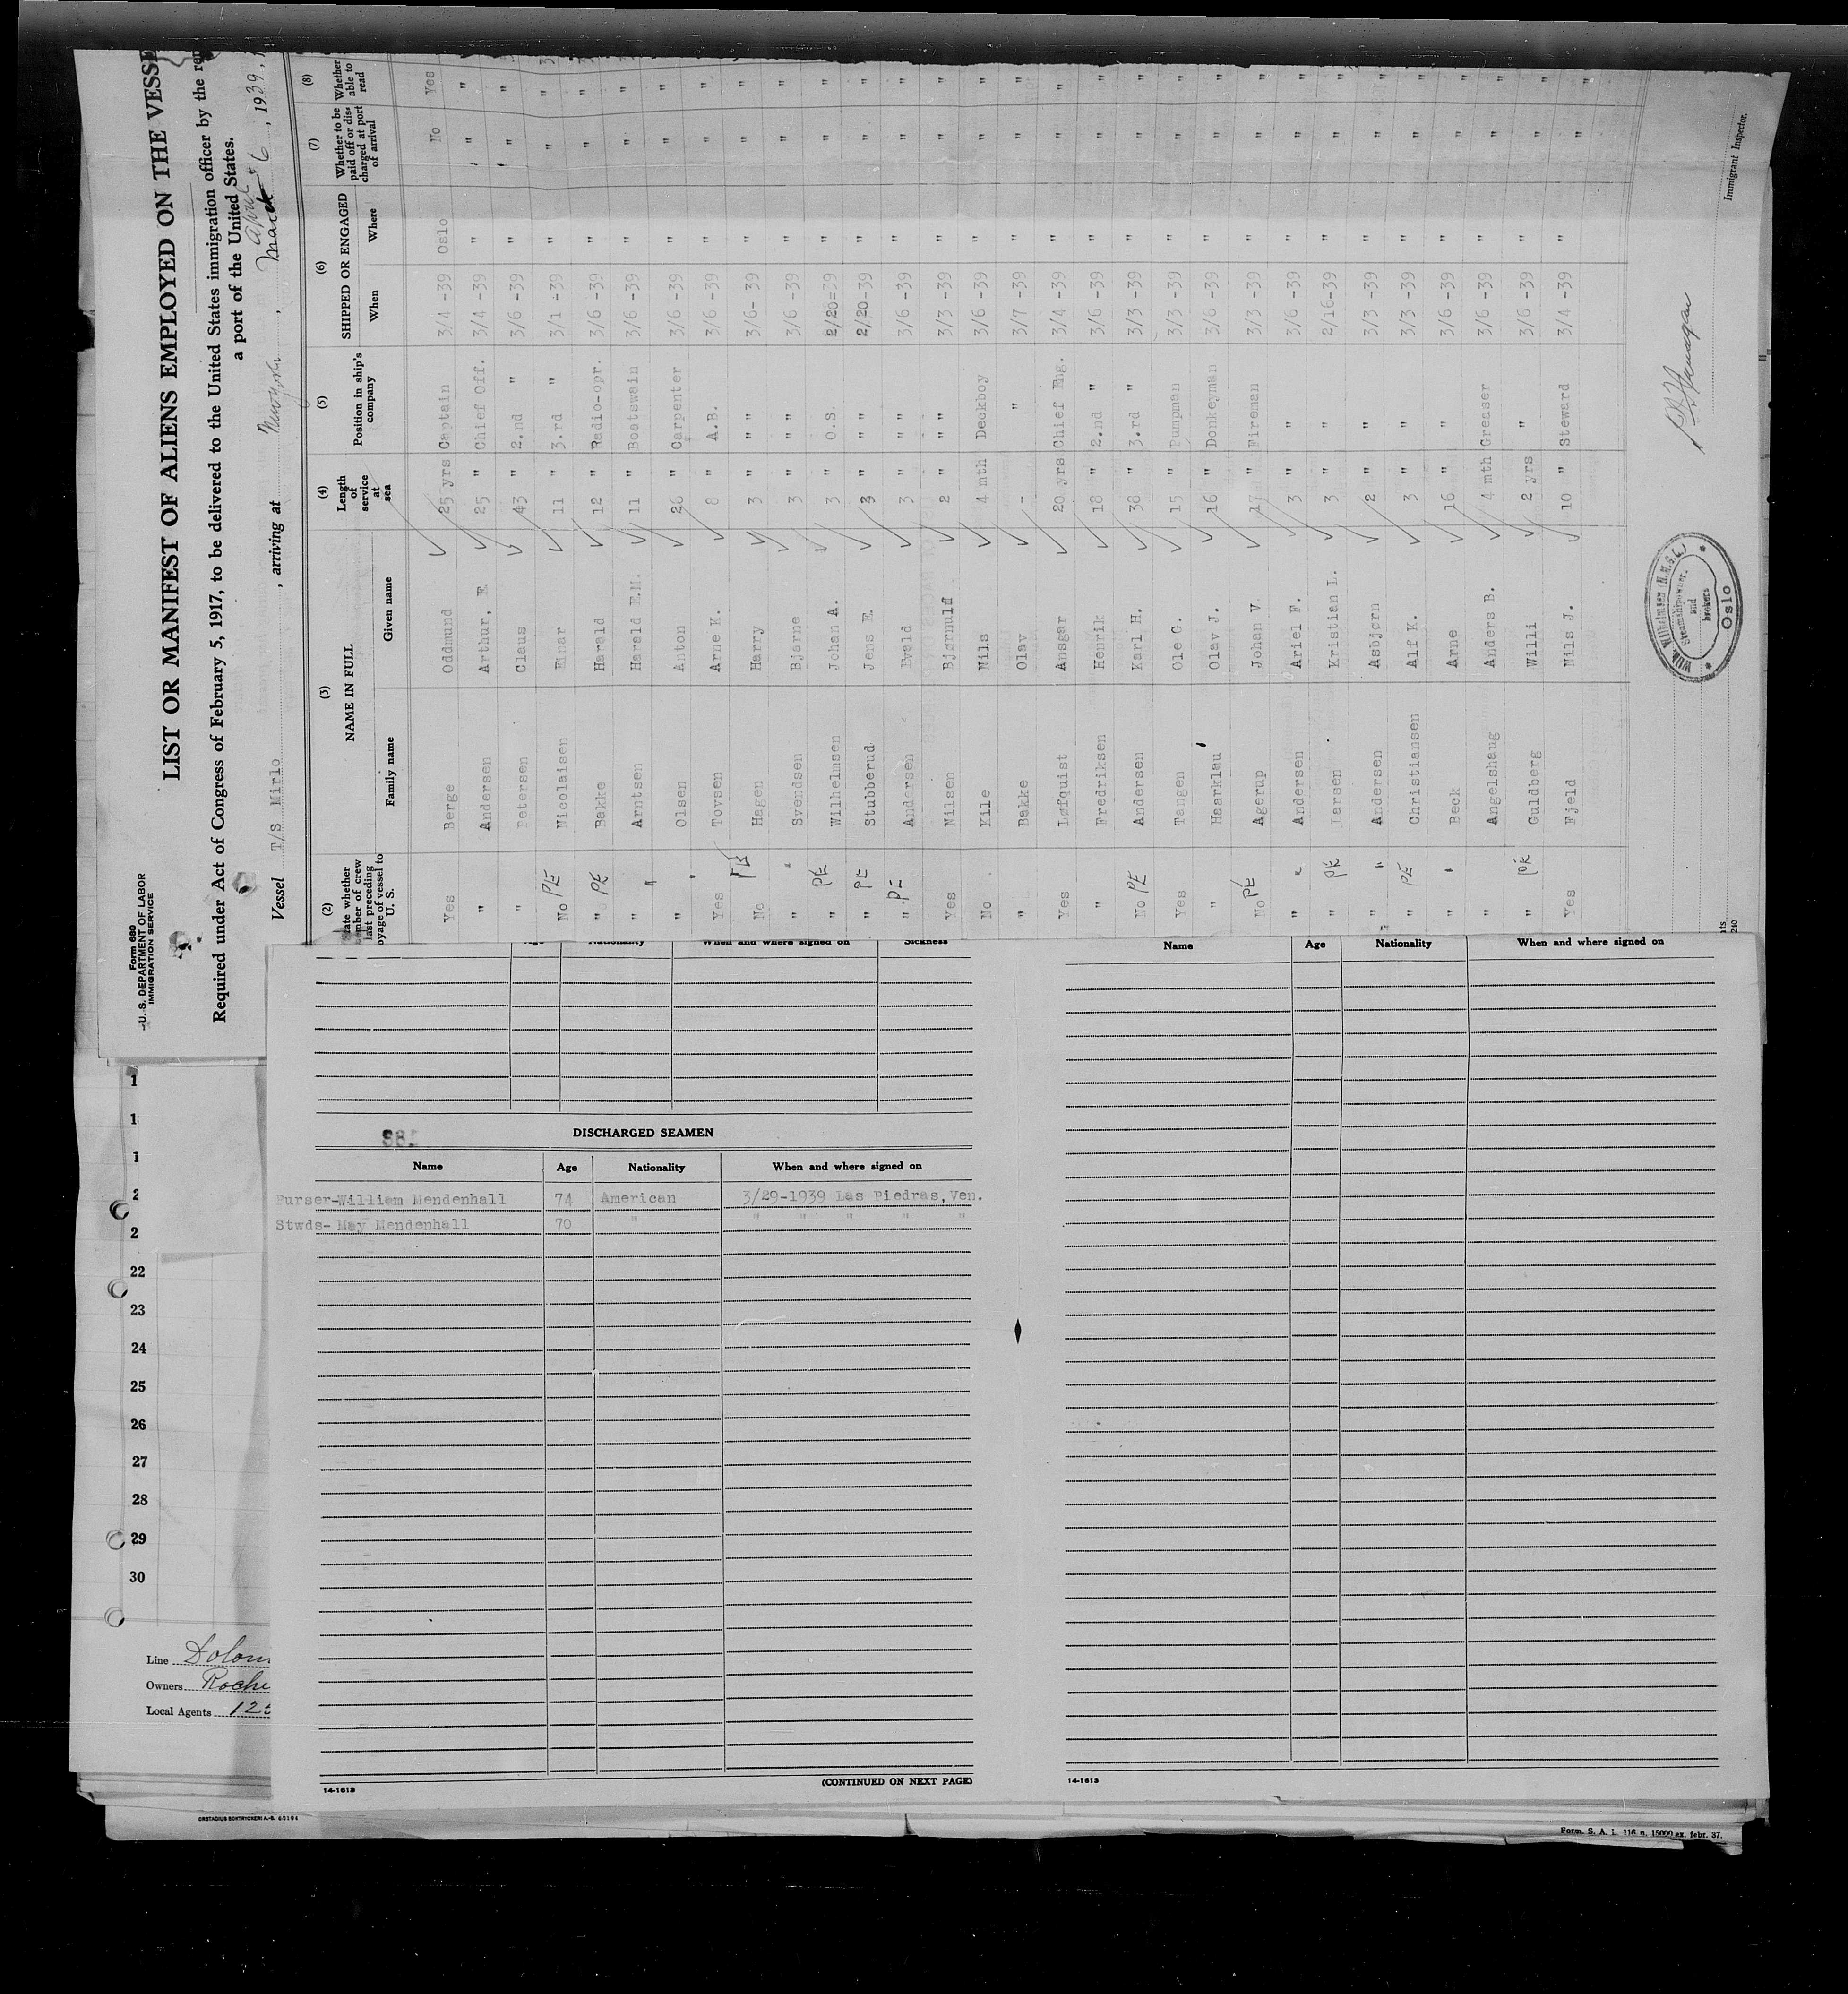 Form 680
U. S. DEPARTMENT OF LABOR
IMMIGRATION SERVICE
LIST OR MANIFEST OF ALIENS EMPLOYED ON THE VESSE
Required under Act of Congress of February 5, 1917, to be delivered to the United States immigration officer by the re
a port of the United States.
Vessel T/S Mirlo , arriving at New York , April 6 , 1939,
(2) (3) (4) (5) (6) (7) (8)
NAME IN FULL
SHIPPED OR ENGAGED
Family name Given name
Length of service at sea
Position in ship's company
When Where
Whether to be paid off or discharged at port of arrival
Whether able to read
Yes Berge Oddmund 25 yrs Captain 3/4 -39 Oslo No Yes
" Andersen Arthur, E 25 " Chief Off. 3/4 -39 " " "
" Petersen Claus 43 " 2.nd " 3/6 -39 " " "
No PE Nicolaisen Einar 11 " 3.rd " 3/1 -39 " " "
" PE Bakke Harald 12 " Radio-opr. 3/6 -39 " " "
" " Arntsen Harald E.M. 11 " Boatswain 3/6 -39 " " "
" Olsen Anton 26 " Carpenter 3/6 -39 " " "
Yes Tovsen Arne K. 8 " A.B. 3/6 -39 " " "
No PE Hagen Harry 3 " " " 3/6- 39 " " "
" " Svendsen Bjarne 3 " " " 3/6 -39 " " "
" PE Wilhelmsen Johan A. 3 " O.S. 2/20=39 " " "
" PE Stubberud Jens E. 3 " " " 2/20-39 " " "
" PE Andersen Evald 3 " " " 3/6 -39 " " "
Yes Nilsen Bjørnulf 2 " " " 3/3 -39 " " "
No Kile Nils 4 mth Deckboy 3/6 -39 " " "
" Bakke Olav - " 3/7 -39 " " "
Yes Løfquist Ansgar 20 yrs Chief Eng. 3/4 -39 " " "
" Fredriksen Henrik 18 " 2.nd " 3/6 -39 " " "
No PE Andersen Karl H. 38 " 3.rd " 3/3 -39 " " "
Yes Tangen Ole G. 15 " Pumpman 3/3 -39 " " "
" Haarklau Olav J. 16 " Donkeyman 3/6 -39 " " "
No PE Agerup Johan V. 17 " Fireman 3/3 -39 " " "
" " Andersen Ariel F. 3 " " 3/6 -39 " " "
" PE Larsen Kristian L. 3 " " 2/16-39 " " "
" " Andersen Asbjørn 2 " " 3/3 -39 " " "
" PE Christiansen Alf K. 3 " " 3/3 -39 " " "
" " Beck Arne 16 " " 3/6 -39 " " "
" Angelshaug Anders B. 4 mth Greaser 3/6 -39 " " "
" PE Guldberg Willi 2 yrs " 3/6 -39 " " "
Yes Fjeld Nils J. 10 " Steward 3/4 -39 " " "
Immigrant Inspector.
Wilh. Wilhelmsen
Steamshipowner.
and
brokers
Oslo
Nationality When and where signed on Sickness
Name Age Nationality When and where signed on
DISCHARGED SEAMEN
Name Age Nationality When and where signed on
Purser-William Mendenhall 74 American 3/29-1939 Las Piedras,Ven.
Stwds- May Mendenhall 70 " " " " " "
22
23
24
25
26
27
28
29
30
Line
Owners Roche
Local Agents
14-1613
(CONTINUED ON NEXT PAGE)
14-1613
Form. S. A. L. 116 n. 15000 ex. febr. 37.